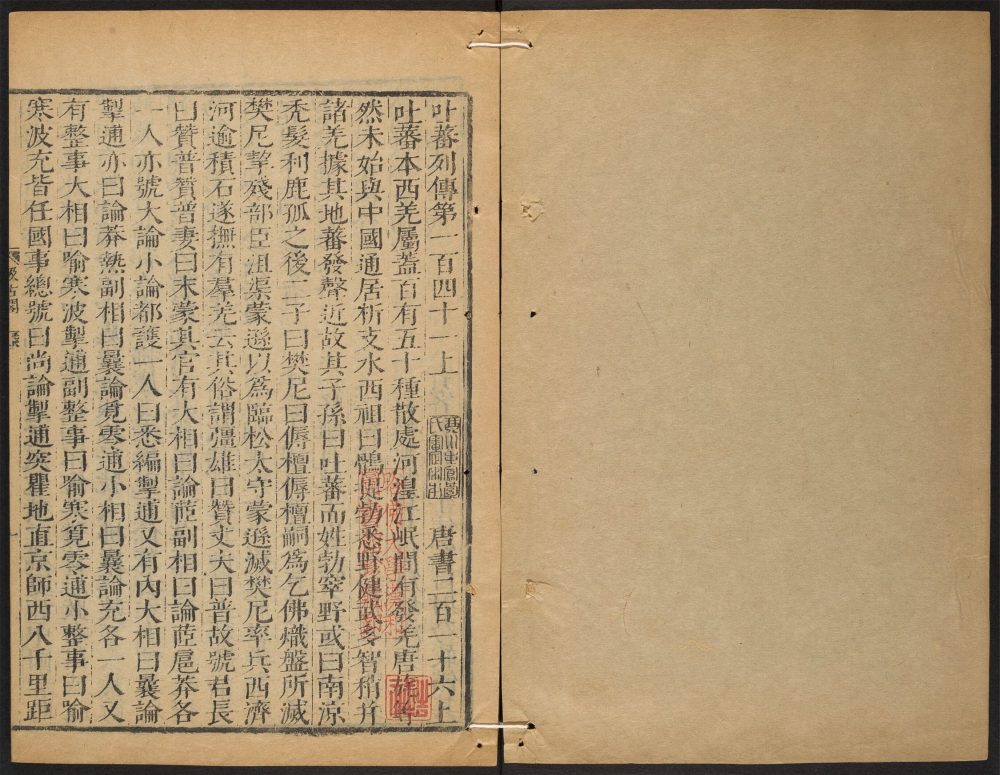 吐蕃列傳第一百四十一上 唐書二百一十六上
吐蕃本西羌屬蓋百有五十種散處河湟江岷間有發羌唐旄等
然未始與中國通居析支水西祖曰鶻提勃悉野健武多智稍并
諸羌據其地蕃發聲近故其子孫曰吐蕃而姓勃窣野或曰南涼
禿髮利鹿孤之後二子曰樊尼曰傉檀傉檀嗣爲乞佛熾盤所滅
樊尼挈殘部臣沮渠蒙遜以爲臨松太守蒙遜滅樊尼率兵西濟
河逾積石遂撫有羣羌云其俗謂彊雄曰贊丈夫曰普故號君長
曰贊普贊普妻曰末蒙其官有大相曰論茝副相曰論茝扈莽各
一人亦號大論小論都護一人曰悉編掣逋又有內大相曰曩論
掣逋亦曰論莽熱副相曰曩論覓零逋小相曰曩論充各一人又
有整事大相曰喻寒波掣逋副整事曰喻寒覓零逋小整事曰喻
寒波充皆任國事總號曰尚論掣逋突瞿地直京師西八千里距
汲古閣